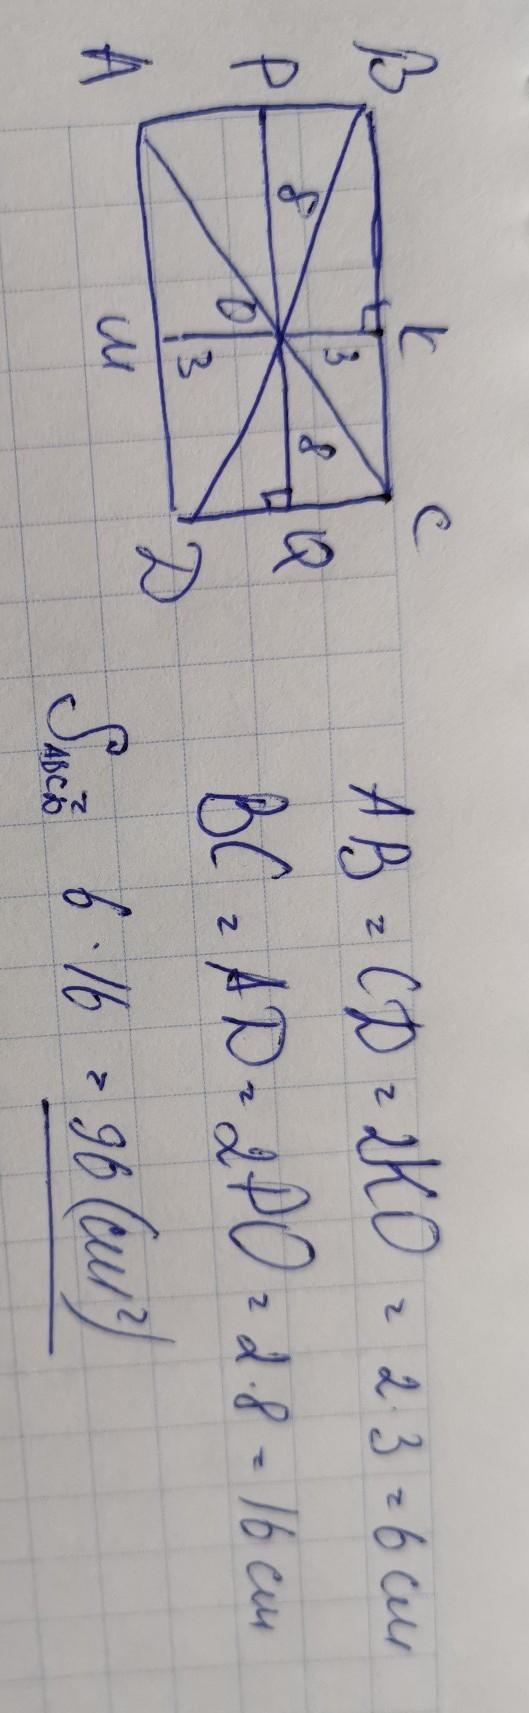 B K C
8 3
P O 8 Q
3
A M D
AB = CD = 2KO = 2·3 = 6 см
BC = AD = 2PO = 2·8 = 16 см
S ABCD = 6·16 = 96 (см²)